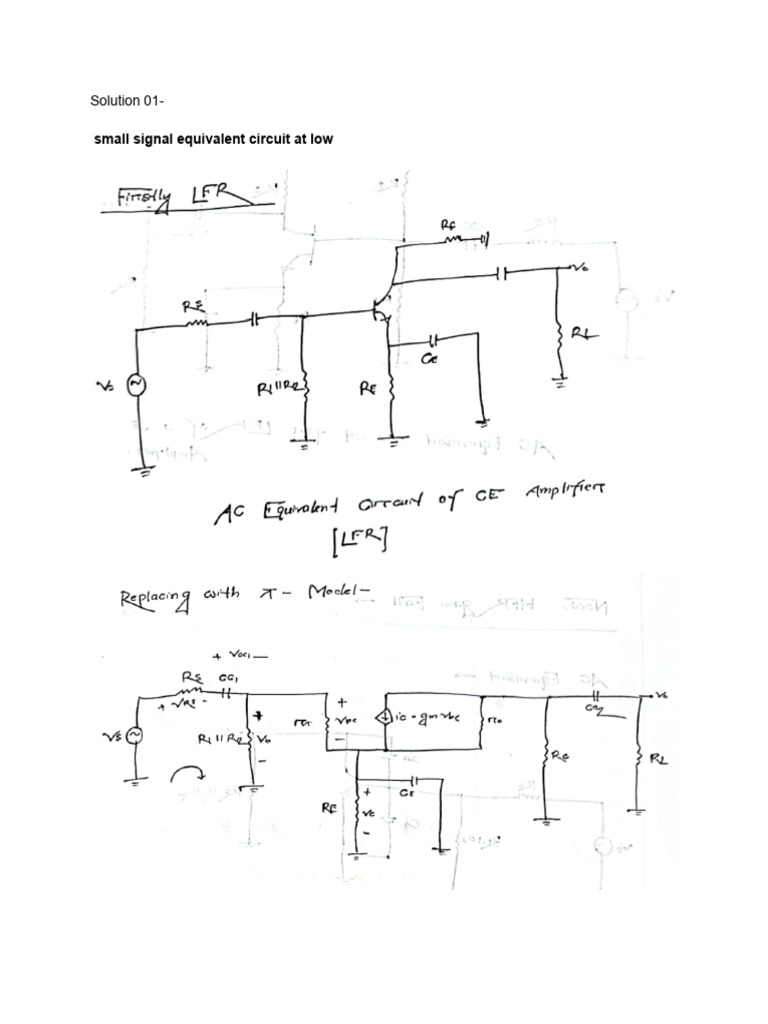 Solution 01-
small signal equivalent circuit at low
Firstly LFR
Rc
Vo
Rs
RL
CE
Vs
R1||R2
RE
AC Equivalent Circuit of CE Amplifier
[LFR]
Replacing with π- Model-
+ Vcc1 -
Rs CC1
+ VRs -
+ + Vo
Vbe ic = gm vbe ro CC2
Vs R1||R2 Vb
- - Rc RL
CE
RE + VE -